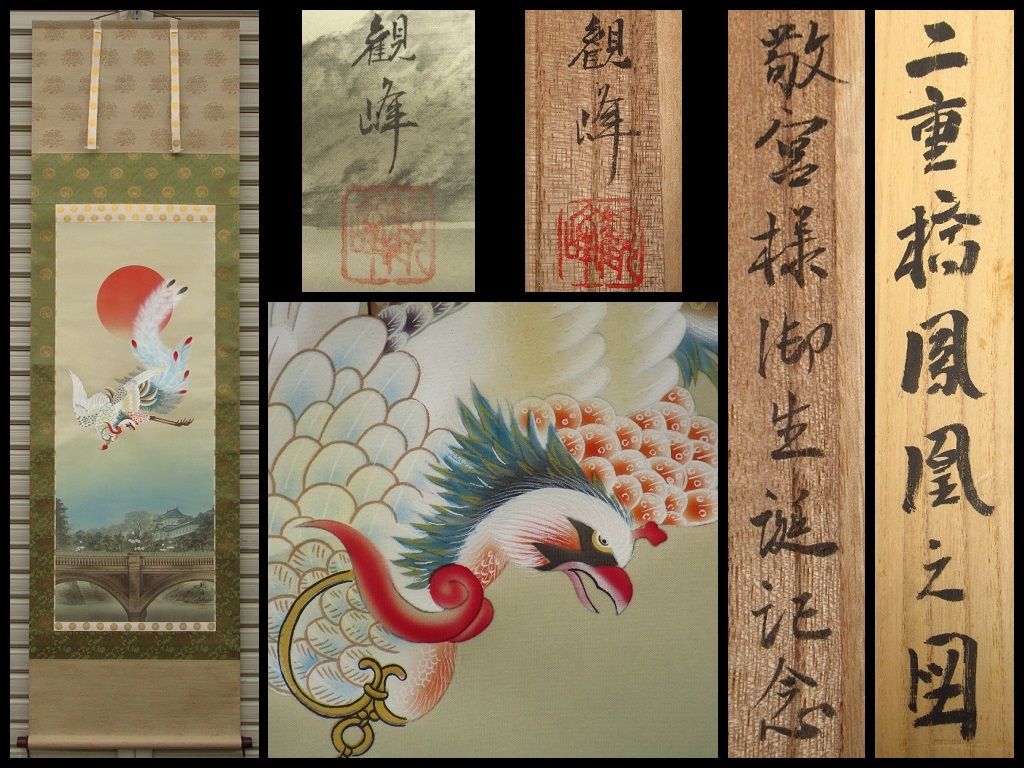 観峰
観峰
敬宮様御生誕記念
二重橋鳳凰之図